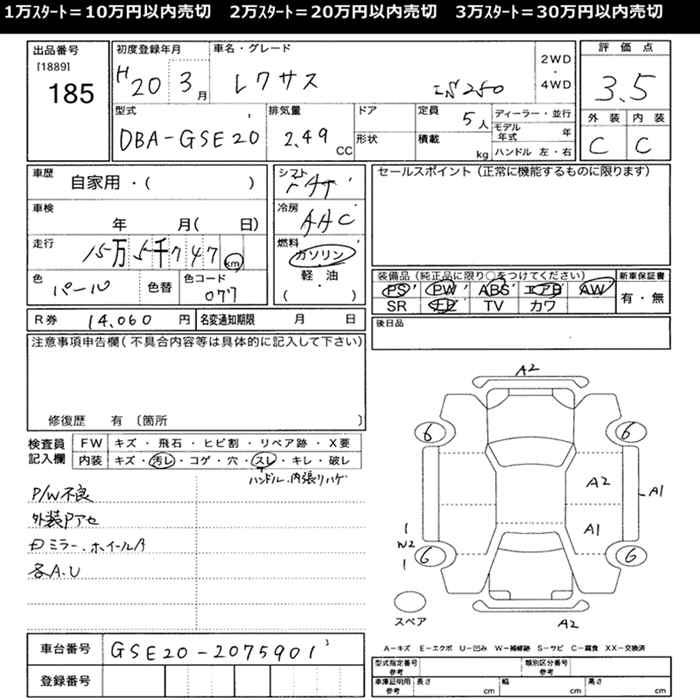 1万ｽﾀｰﾄ＝10万円以内売切　2万ｽﾀｰﾄ＝20万円以内売切　3万ｽﾀｰﾄ＝30万円以内売切
出品番号
[1889]
185
初度登録年月
H20 3月
車名・グレード
レクサス
IS250
2WD
・
4WD
評価点
3.5
外装 内装
C C
型式
DBA-GSE20
排気量
2.49 CC
ドア
形状
定員
5人
積載
kg
ディーラー・並行
モデル年式 年
ハンドル 左・右
車歴
自家用・( )
車検
年 月( 日)
走行
15万5千747 km
色
パール
色替
色コード
077
シフト
FAT
冷房
AAC
燃料
ガソリン
軽・油
( )
セールスポイント（正常に機能するものに限ります）
装備品（純正品に限り○をつけてください）
新車保証書
PS PW ABS エアB AW
SR ナビ TV カワ
有・無
後日品
R券 14,060 円
名変通知期限 月 日
注意事項申告欄(不具合内容等は具体的に記入して下さい)
修復歴 有〔箇所 〕
検査員記入欄
FW キズ・飛石・ヒビ割・リペア跡・X要
内装 キズ・汚レ・コゲ・穴・スレ・キレ・破レ
ハンドル、内張りハゲ
P/W不良
外装Pアセ
ミラー、ホイール
各A.U
A2
6 6
A2
A1
A1
1
W2
1
6 6
スペア
A2
A－キズ E－エクボ U－凹み W－補修跡 S－サビ C－腐食 XX－交換済
車台番号
GSE20-2075901
登録番号
型式指定番号
参考
類別区分番号
参考
車庫証明用
参考
長さ cm
幅 cm
高さ cm